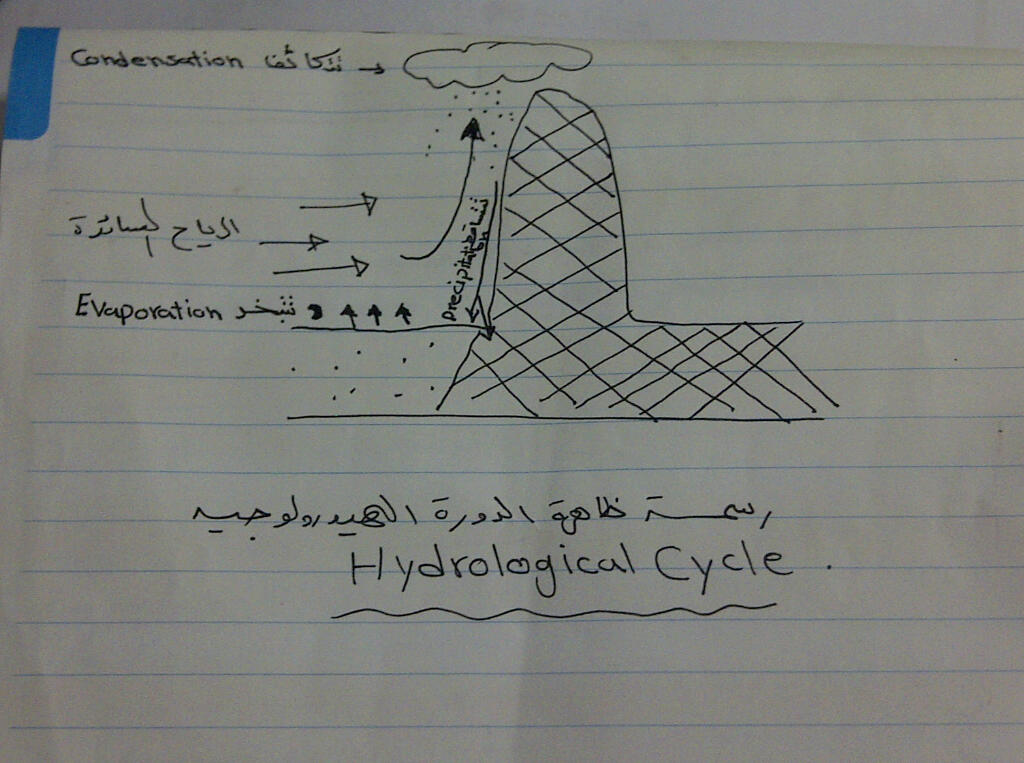 Condensation تتكاثف
الرياح السائدة
Precipitation تتساقط
Evaporation تتبخر
رسمة ظاهرة الدورة الهيدرولوجيه
Hydrological Cycle .